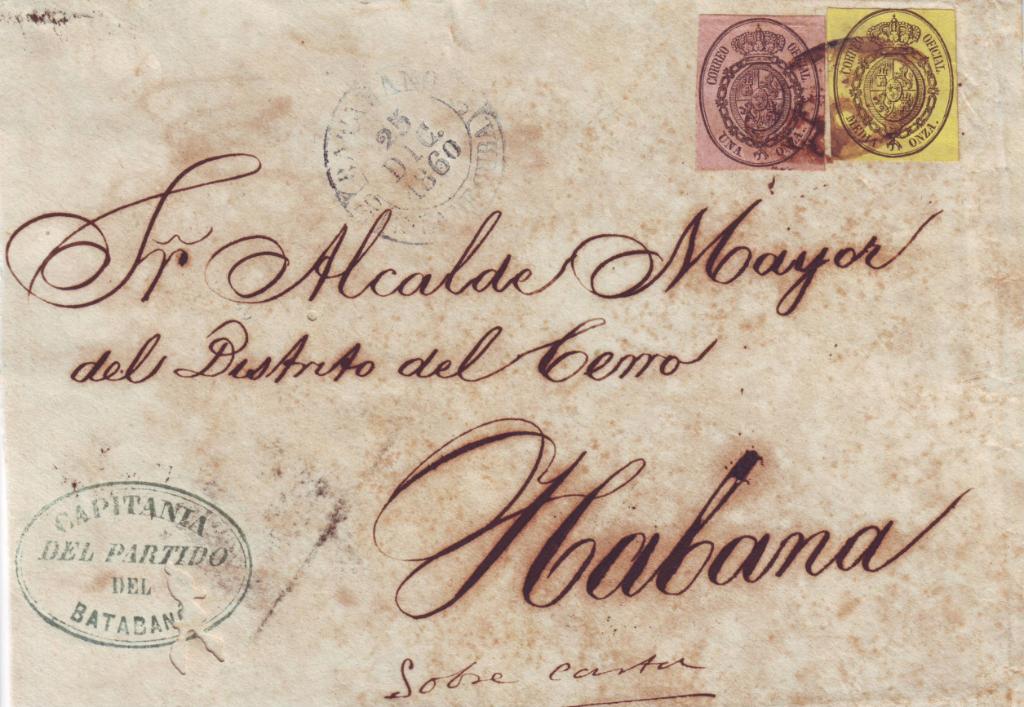 CORREO OFICIAL
UNA ONZA.
CORREO OFICIAL
MEDIA ONZA.
25
DIC.
1860
Sr Alcalde Mayor
del Distrito del Cerro
Habana
CAPITANIA
DEL PARTIDO
DEL
BATABANO
Sobre carta